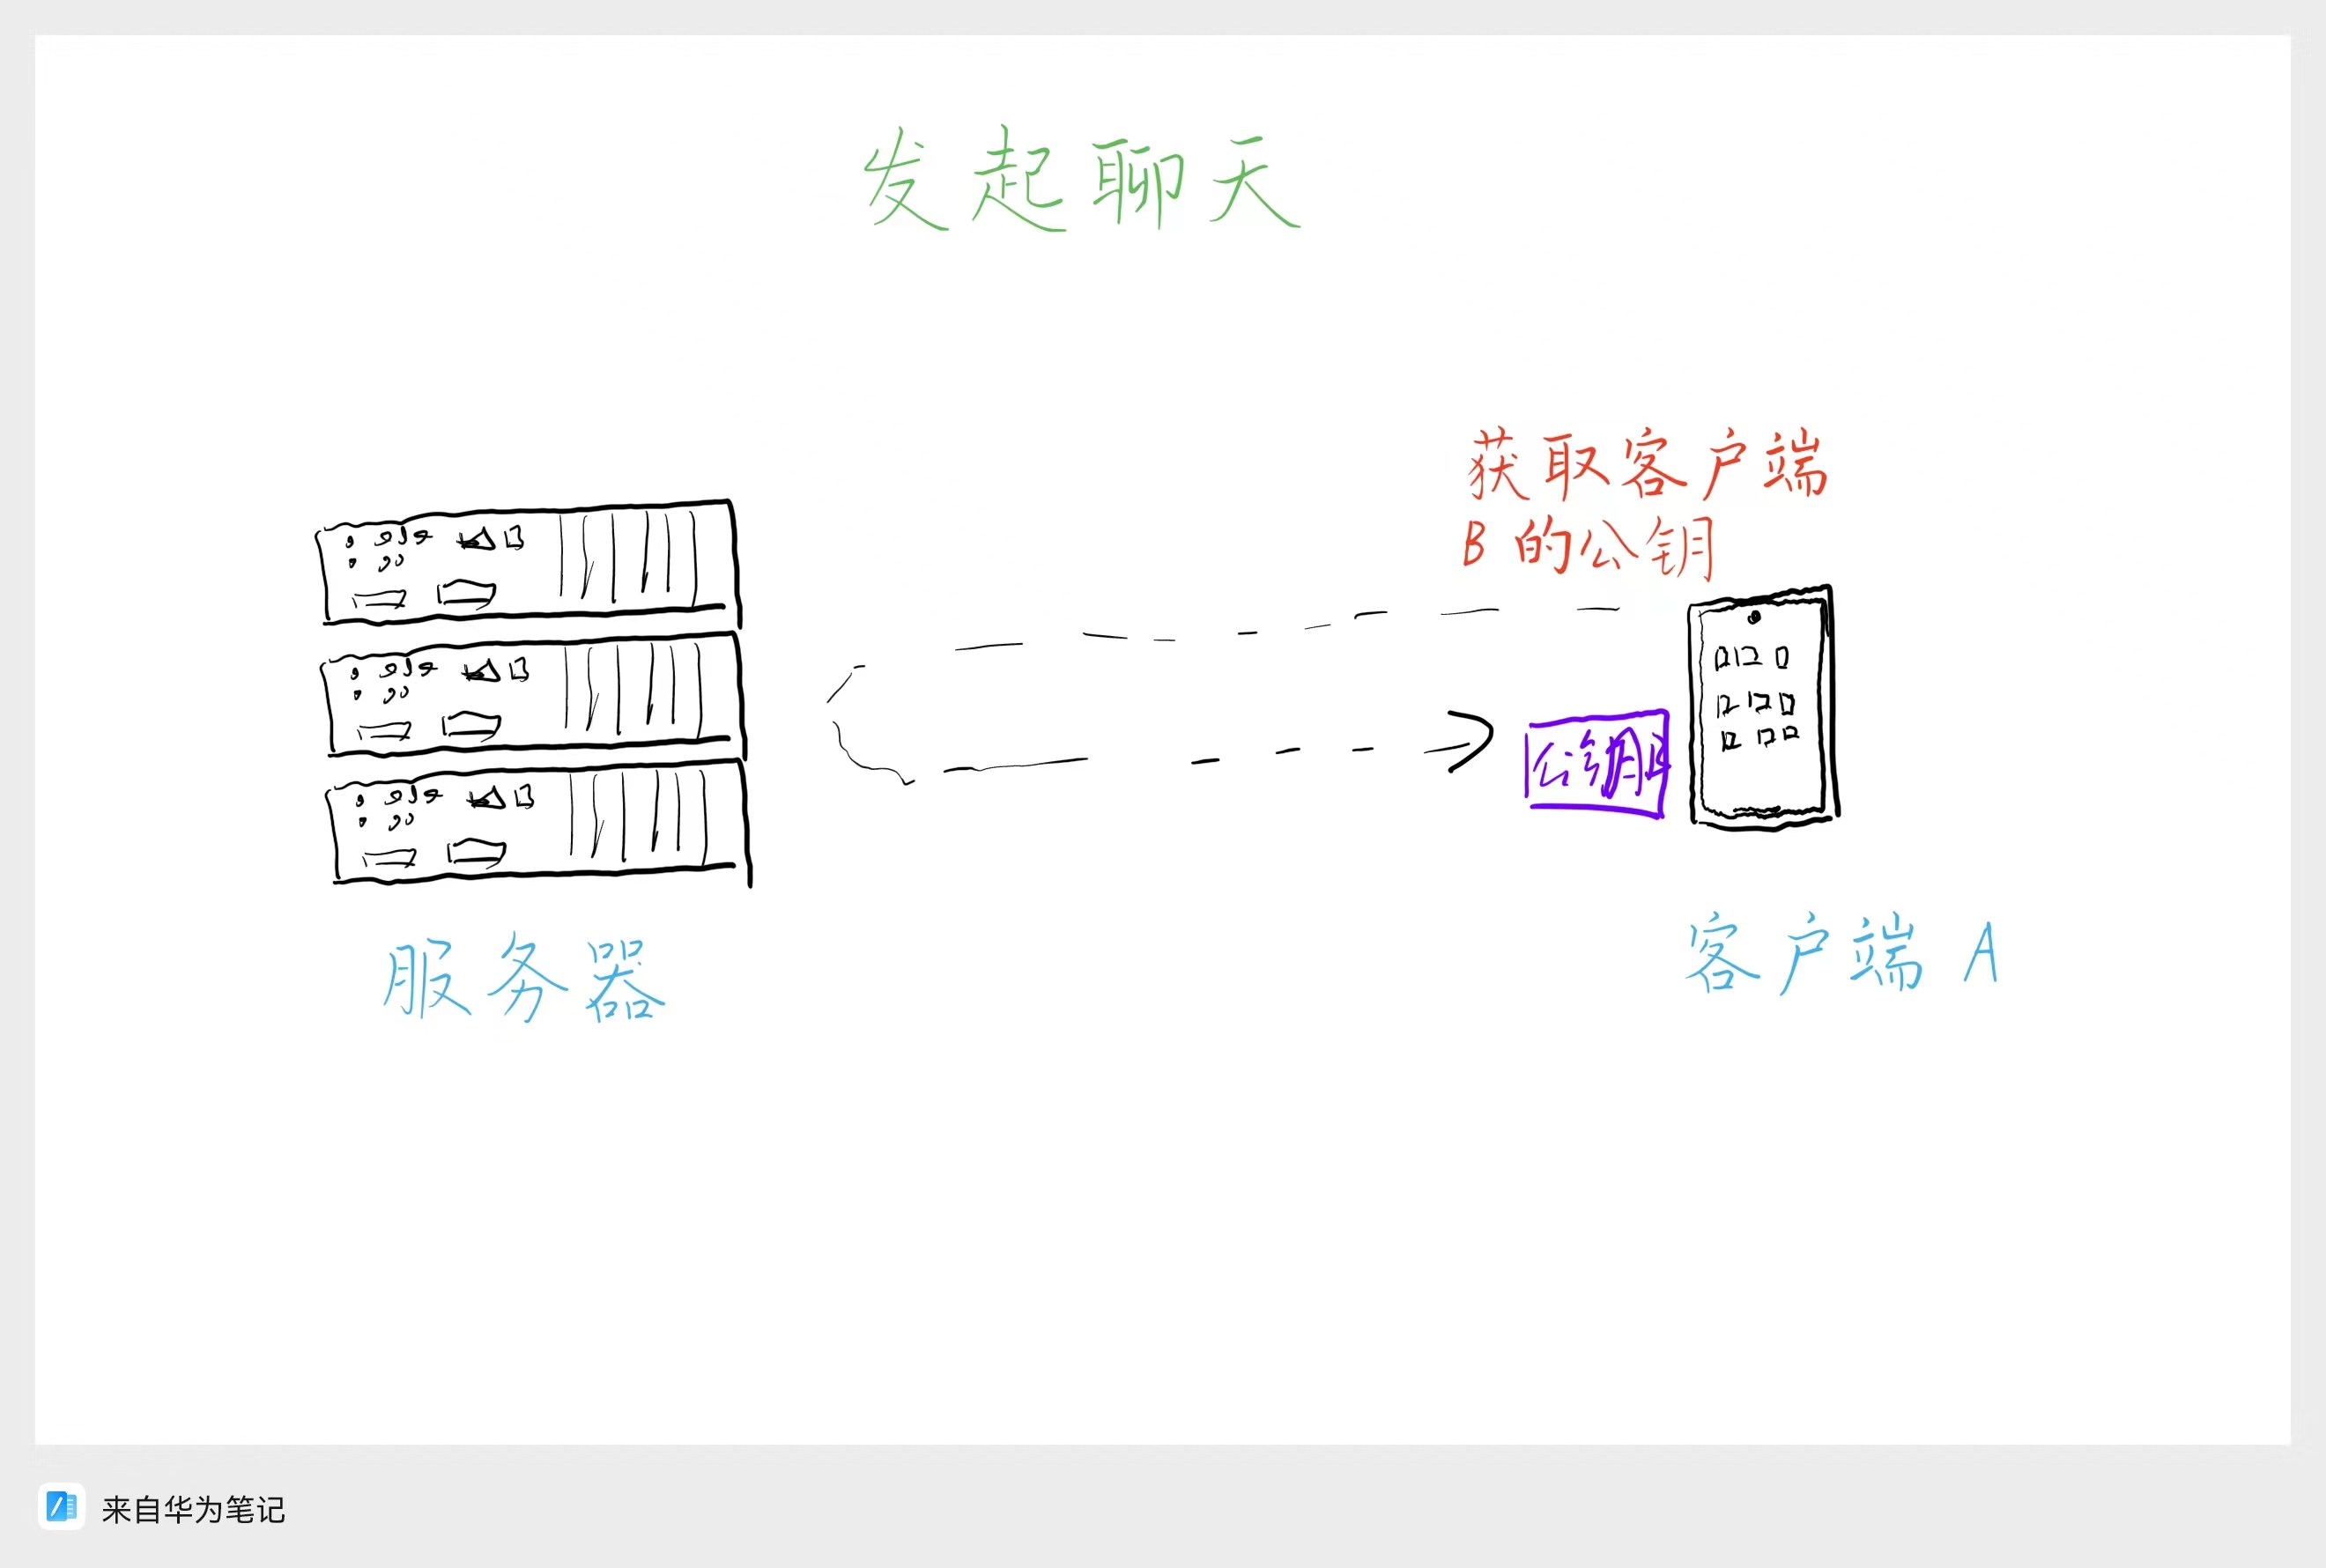 发起聊天
获取客户端
B 的公钥
公钥
服务器
客户端 A
来自华为笔记